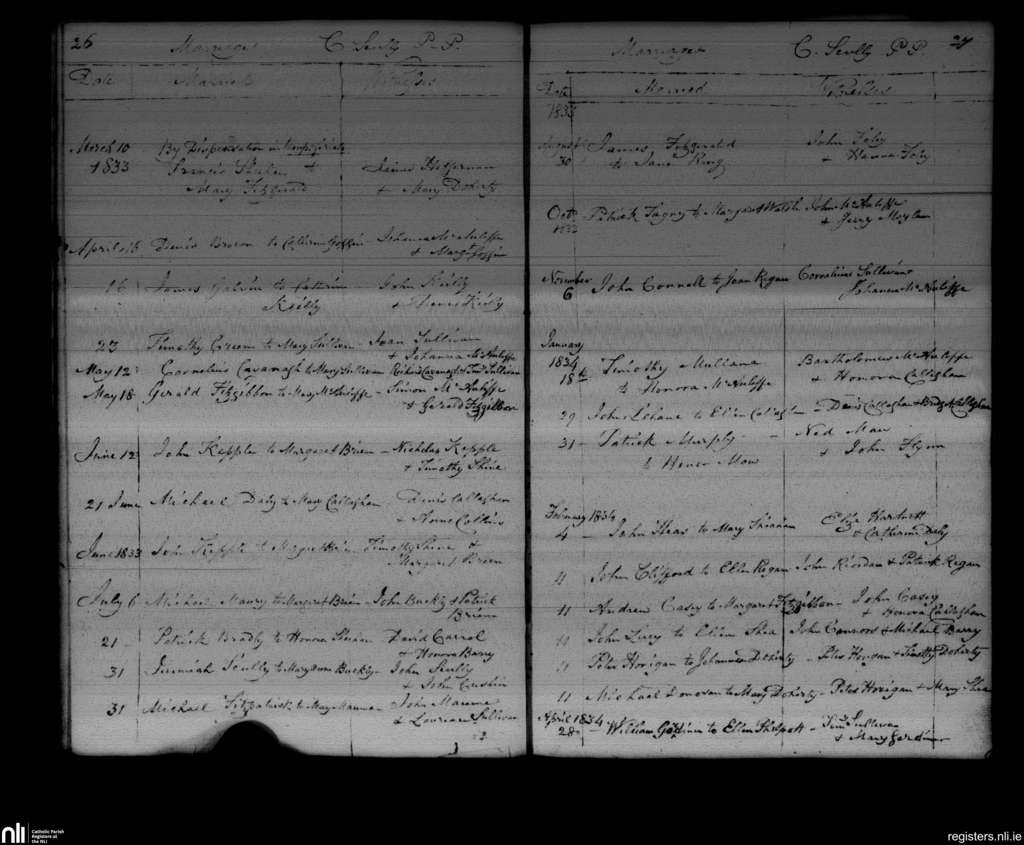 26 Marriages C. Scully P.P.
Date Married Witnesses
March 10 By Dispensation in
1833 Francis to Denis Hefernan
Mary Fitzgerald + Mary Doherty
April 15 Denis Brown to Catherine Goggin Johanna McAuliffe
+ Margt Goggin
16 James Galvin to Catherine John Reilly
Reilly
23 Timothy Green to Mary Sullivan Joan Sullivan
+ Johanna McAuliffe
May 12 Cornelius Cavanagh to Mary Sullivan Richard Cavanagh + Timy Sullivan
May 18 Gerald Fitzgibbon to Mary McAuliffe Simon McAuliffe
+ Gerald Fitzgibbon
June 12 John Kepple to Margaret Brien - Nicholas Kepple
+ Timothy Shine
21 June Michael Daly to Mary Callaghan Denis Callaghan
+ Collins
June 1833 John Kepple to Timothy Shine +
Margaret Breen
July 6 Michael to Margaret Brien - John Buckly + Patrick
Brien
21 - Patrick Bradly to Honora David Carrol
+ Honora Barry
31 Jeremiah Scully to Mary Anne Buckly - John Scully
+ John
31 Michael Fitzpatrick to Mary John
+ Sullivan
Marriages C. Scully P.P. 27
Date Married Witnesses
1833
August James Fitzgerald John Foly
30 to Jane King + Hanna Foly
Octr Patrick to Margaret Walsh John McAuliffe
1833 + Jerry Moylan
November John Connell to Joan Regan Cornelius Sullivan
6 Johanna McAuliffe
January
1834 Timothy Mullane Bartholomew McAuliffe
18th to Honora McAuliffe + Honora Callaghan
29 John Lehane to Ellen Callaghan - Denis Callaghan +
31 - Patrick Murphy - Ned
to + John Flynn
February 1834
4 - John to Mary Eliza Hartnett
+ Catherine Daly
11 John Clifford to Ellen Regan John Riordan + Patrick Regan
11 Andrew Casey to Margaret Fitzgibbon - John Casey
+ Honora Callaghan
11 John Lucy to Ellen Shea John Connors + Michael Barry
11 Peter Horigan to Johanna Doherty - Peter Horigan + Timothy Doherty
11 Michael Donovan to Mary Doherty - Peter Horigan + Mary Shea
April 1834
28 - William to Ellen - Timy Sullivan
+ Mary
nli
Catholic Parish
Registers at
the NLI
registers.nli.ie